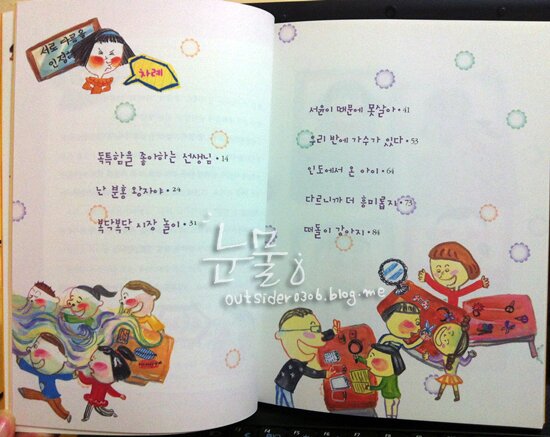 서로 다름을
인정해요
차례
독특함을 좋아하는 선생님 • 14
난 분홍 왕자야 • 24
복닥복닥 시장 놀이 • 31
서윤이 때문에 못살아 • 41
우리 반에 가수가 있다 • 53
인도에서 온 아이 • 64
다르니까 더 흥미롭지 • 73
떠돌이 강아지 • 84
눈물
outsider0306.blog.me